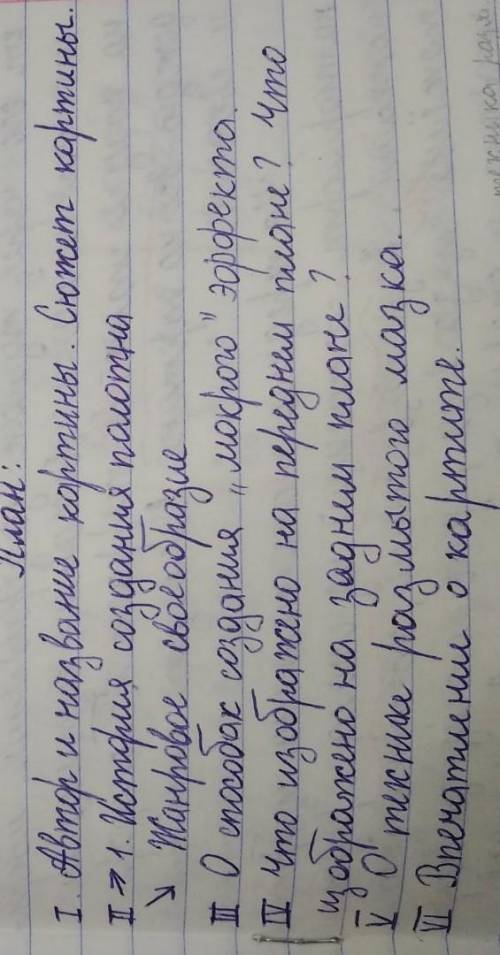 План:
I. Автор и название картины. Сюжет картины.
II → 1. История создания полотна
↘ Жанровое своеобразие
III О способах создания „мокрого" эффекта.
IV Что изображено на переднем плане? Что
изображено на заднем плане?
V О технике размытого мазка.
VI Впечатление о картите.